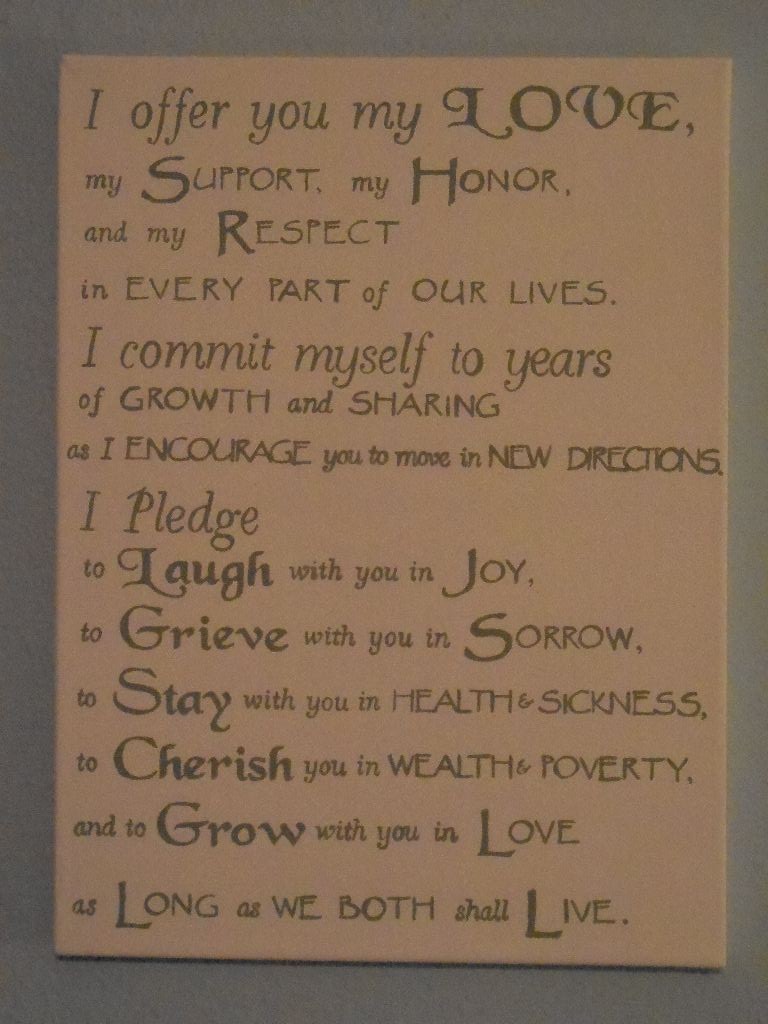 I offer you my LOVE,
my SUPPORT, my HONOR,
and my RESPECT
in EVERY PART of OUR LIVES.
I commit myself to years
of GROWTH and SHARING
as I ENCOURAGE you to move in NEW DIRECTIONS.
I Pledge
to Laugh with you in JOY,
to Grieve with you in SORROW,
to Stay with you in HEALTH & SICKNESS,
to Cherish you in WEALTH & POVERTY,
and to Grow with you in LOVE
as LONG as WE BOTH shall LIVE.